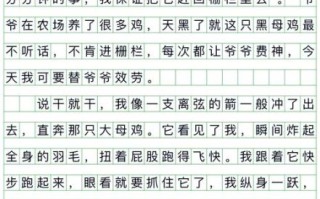 分分钟的事，我保证把它赶回栅栏里去。”爷
爷在农场养了很多鸡，天黑了就这只黑母鸡最
不听话，不肯进栅栏，每次都让爷爷费神，今
天我可要替爷爷效劳。
说干就干，我像一支离弦的箭一般冲了出
去，直奔那只大母鸡。它看见了我，瞬间炸起
全身的羽毛，扭着屁股跑得飞快。我跟着它快
步跑起来，眼看就要抓住它了，我纵身一跃，